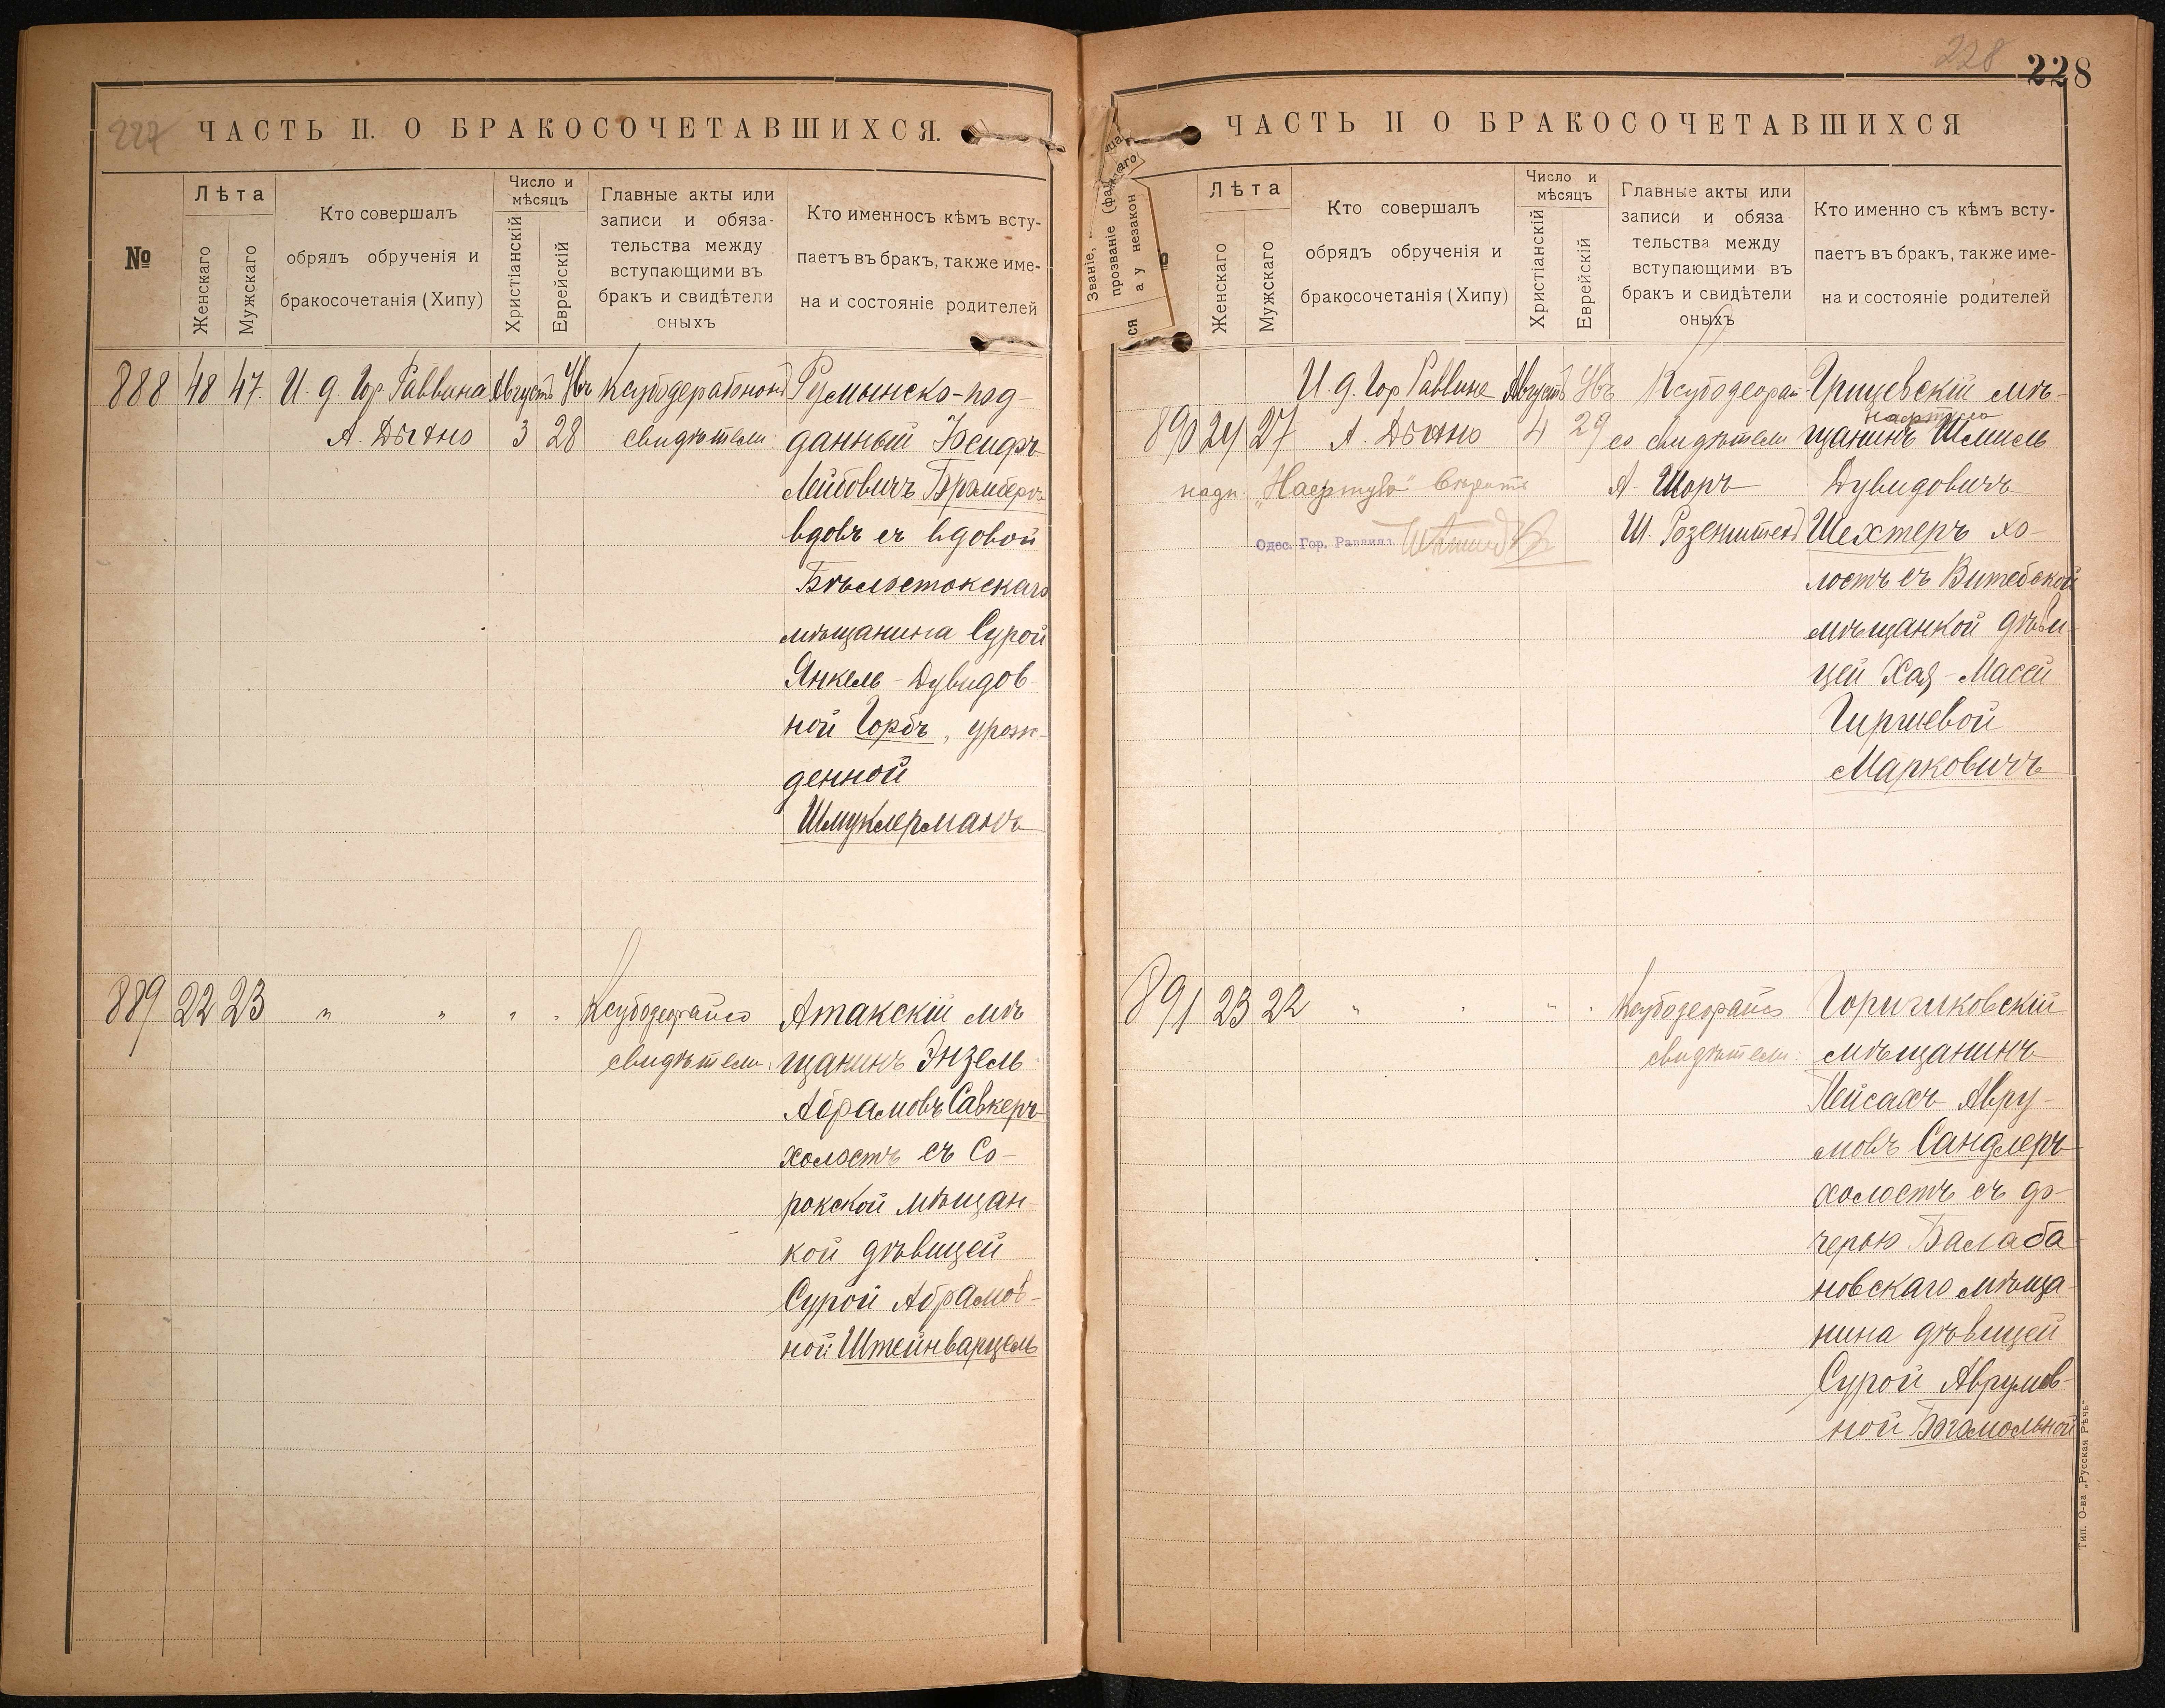 227
ЧАСТЬ II. О БРАКОСОЧЕТАВШИХСЯ.
№
Лѣта
Женскаго
Мужскаго
Кто совершалъ
обрядъ обрученія и
бракосочетанія (Хипу)
Число и
мѣсяцъ
Христіанскій
Еврейскій
Главные акты или
записи и обяза-
тельства между
вступающими въ
бракъ и свидѣтели
оныхъ
Кто именносъ кѣмъ всту-
паетъ въ бракъ, также име-
на и состояніе родителей
888 48 47 И. д. Гор. Раввина Августъ Увъ
А. Дыхно 3 28 свидѣтели:
Румынско-под-
данный
Лейбовичъ
вдовъ съ вдовой
Бѣлостокскаго
мѣщанина Сурой
Янкель-Дувидов-
ной Горбъ, урож-
денной
Шмуклерманъ
889 22 23 " " " "
свидѣтели:
Атакскій мѣ
щанинъ Энзель
Абрамовъ Савкеръ
холостъ съ Со-
рокской мѣщан-
кой дѣвицей
Сурой Абрамов-
ной Штейнварцель
228
228
ЧАСТЬ II О БРАКОСОЧЕТАВШИХСЯ
Званіе,
прозваніе (фа
а у незакон
ся
Лѣта
Женскаго
Мужскаго
Кто совершалъ
обрядъ обрученія и
бракосочетанія (Хипу)
Число и
мѣсяцъ
Христіанскій
Еврейскій
Главные акты или
записи и обяза-
тельства между
вступающими въ
бракъ и свидѣтели
оныхъ
Кто именно съ кѣмъ всту-
паетъ въ бракъ, также име-
на и состояніе родителей
И. д. Гор Раввина Августъ Увъ
890 24 27 А. Дыхно 4 29 со свидѣтели
надп.
А. Шоръ
Одес. Гор. Раввинъ
Грицевскій мѣ-
щанинъ Шмиль
Дувидовичъ
Шехтеръ хо-
лостъ съ Витебской
мѣщанкой дѣви-
цей Хая-Масей
Гиршевой
Марковичъ
891 23 22 " " " "
свидѣтели:
Горичковскій
мѣщанинъ
Пейсахъ Авру-
мовъ Сандлеръ
холостъ съ до-
черью Балаба
новскаго мѣща-
нина дѣвицей
Сурой Аврумов-
ной Богомольной
Тип. О-ва „Русская Рѣчь"